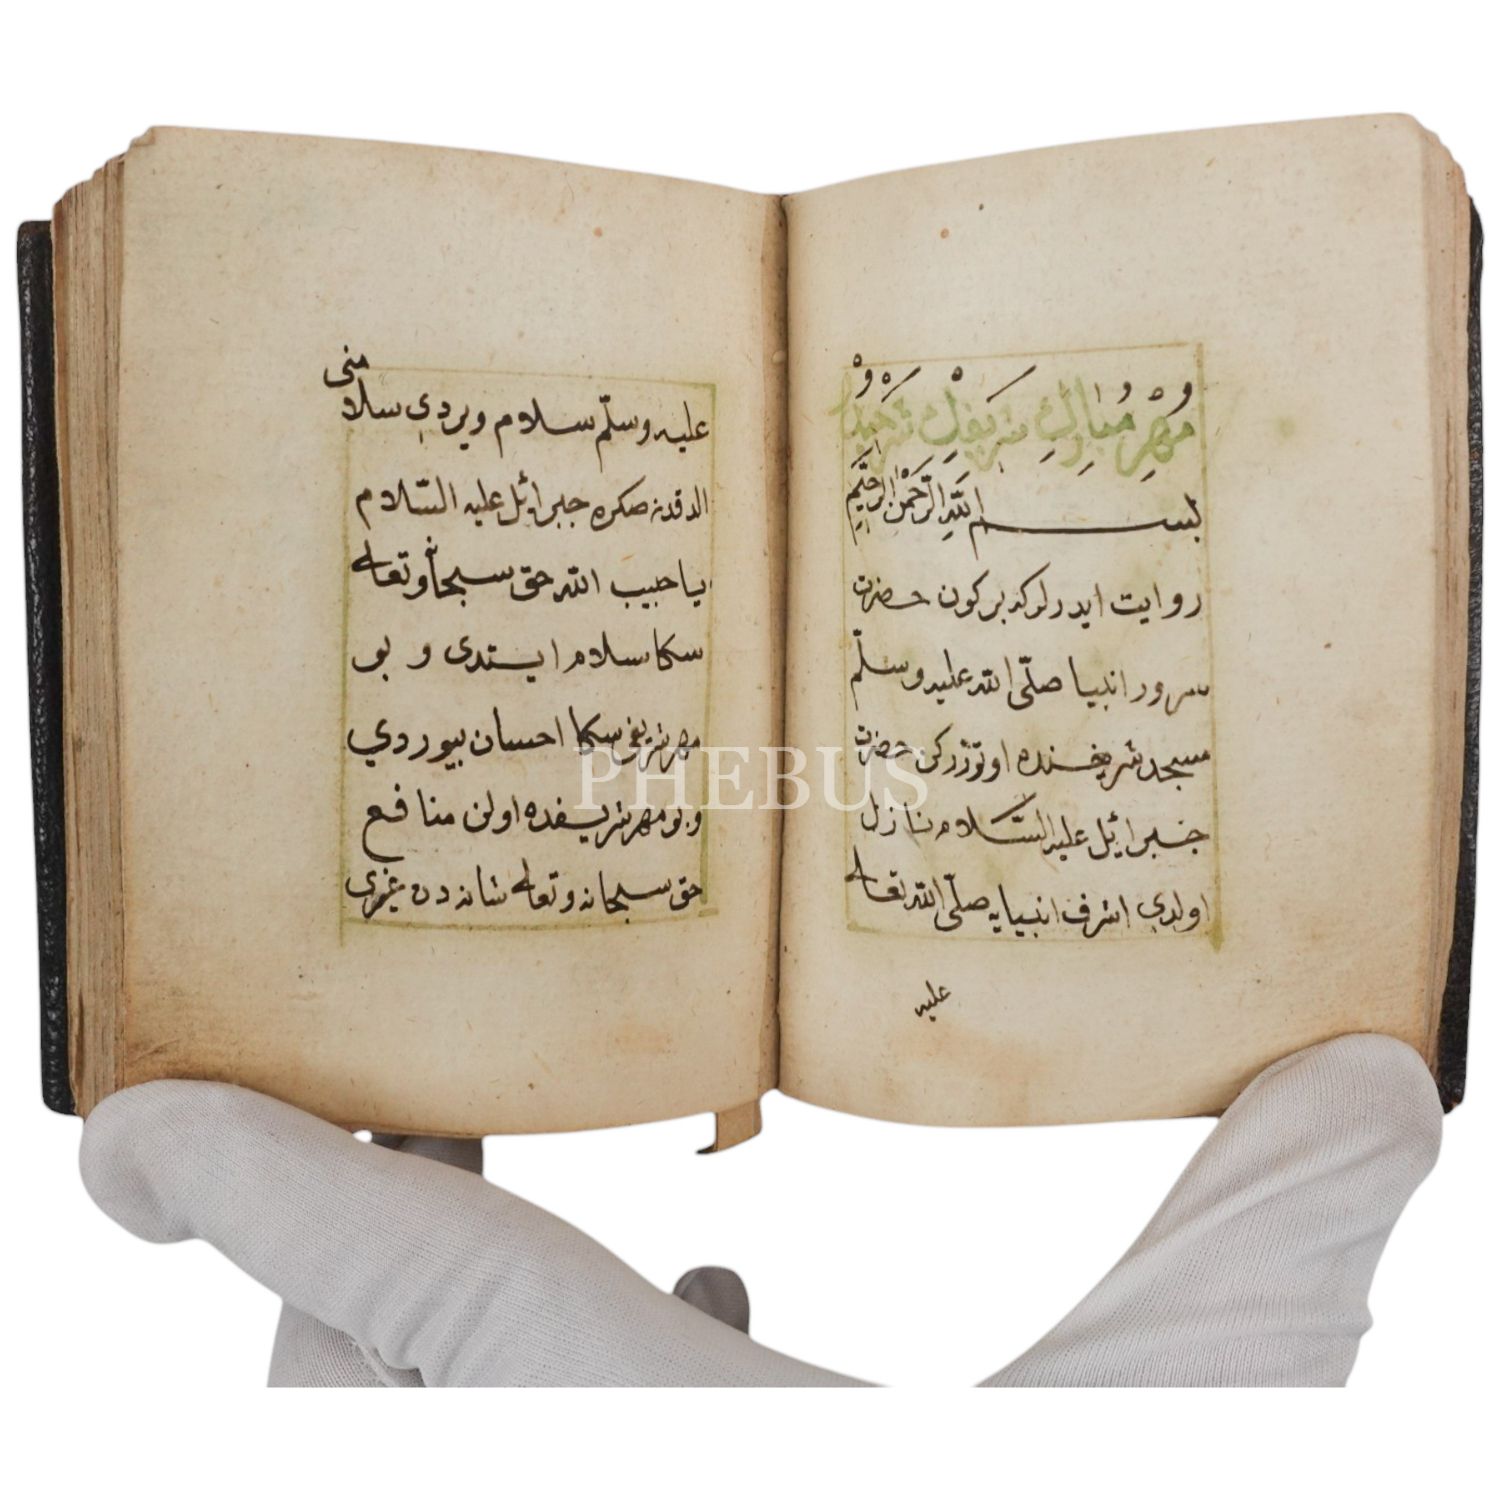 مُهْرِ مُبَارَكِ شَرِيفِكْ شَرْحِيدُرْ
بسم اللّه الرّحمن الرّحيم
روايت ايدرلركه بركون حضرت
سرور انبيا صلّى اللّه عليه وسلّم
مسجد شريفنده اوتوررکن حضرت
جبرائل عليه السّلام نازل
اولدي اشرف انبيايه صلّى اللّه تعالى
عليه
عليه وسلّم سلام ويردي سلامنى
الدقدنصكره جبرائل عليه السّلام
يا حبيب اللّه حق سبحانه وتعالى
سكا سلام ايستدى و بو
مهر شريفى سكا احسان بيوردي
وبو مهر شريفده اولن منافع
حق سبحانه وتعالى شانه دن غيرى
PHEBUS